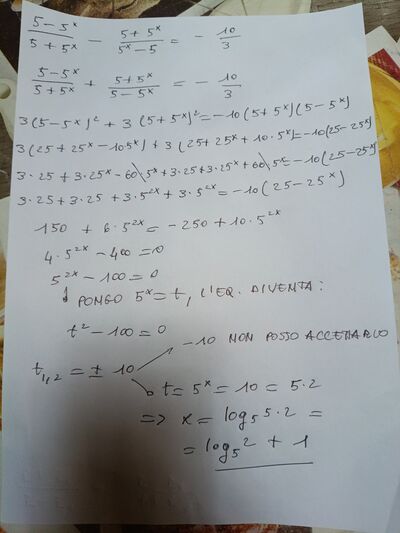 5 - 5^x / 5 + 5^x - 5 + 5^x / 5^x - 5 = - 10 / 3
5 - 5^x / 5 + 5^x + 5 + 5^x / 5 - 5^x = - 10 / 3
3 (5 - 5^x)^2 + 3 (5 + 5^x)^2 = -10 (5 + 5^x) (5 - 5^x)
3 (25 + 25^x - 10·5^x) + 3 (25 + 25^x + 10·5^x) = -10 (25 - 25^x)
3·25 + 3·25^x - 60 5^x + 3·25 + 3·25^x + 60 5^x = -10 (25 - 25^x)
3·25 + 3·25 + 3·5^2x + 3·5^2x = -10 (25 - 25^x)
150 + 6·5^2x = -250 + 10·5^2x
4·5^2x - 400 = 0
5^2x - 100 = 0
PONGO 5^x = t, L'EQ. DIVENTA:
t^2 - 100 = 0
-10 NON POSSO ACCETTARLO
t1,2 = ± 10
t = 5^x = 10 = 5·2
=> x = log5 5·2 =
= log5 2 + 1